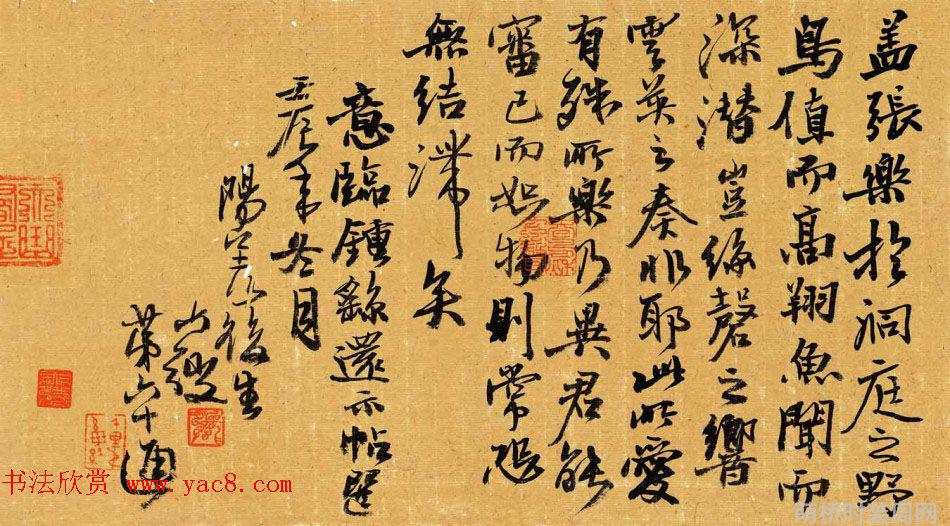 盖張樂於洞庭之野
鳥值而高翔魚聞而
深潛豈絲磬之響
雲英之奏非耶此所愛
有殊所樂乃異君能
審己而恕物則常
無結滯矣
意臨鍾繇還示帖
年冬月
陽後生
第六十通
书法欣赏 www.yac8.com